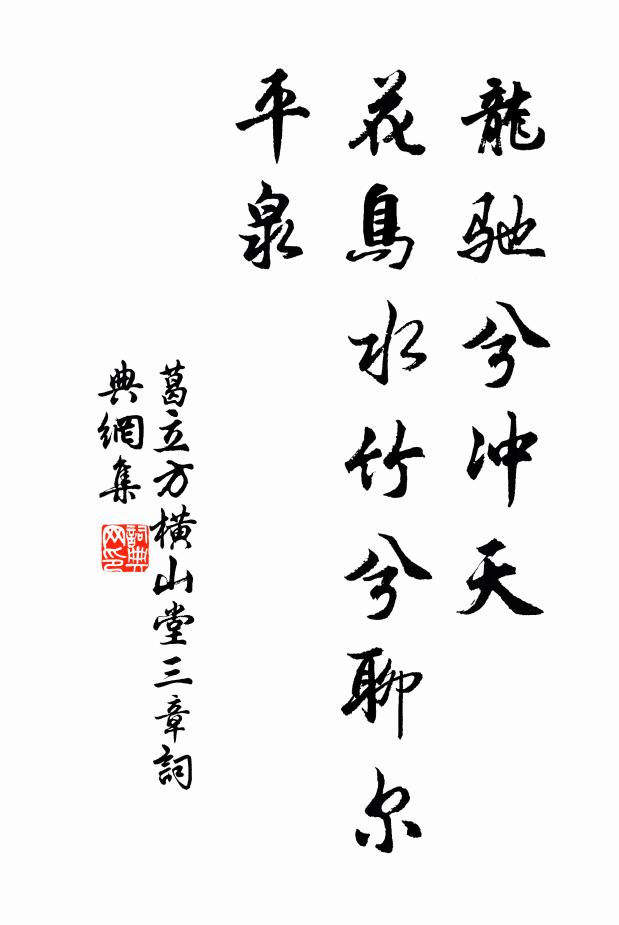 龍馳兮冲天
花鳥水竹兮聊尔
平泉
葛立方橫山堂三章詞
典網集
詞典網印